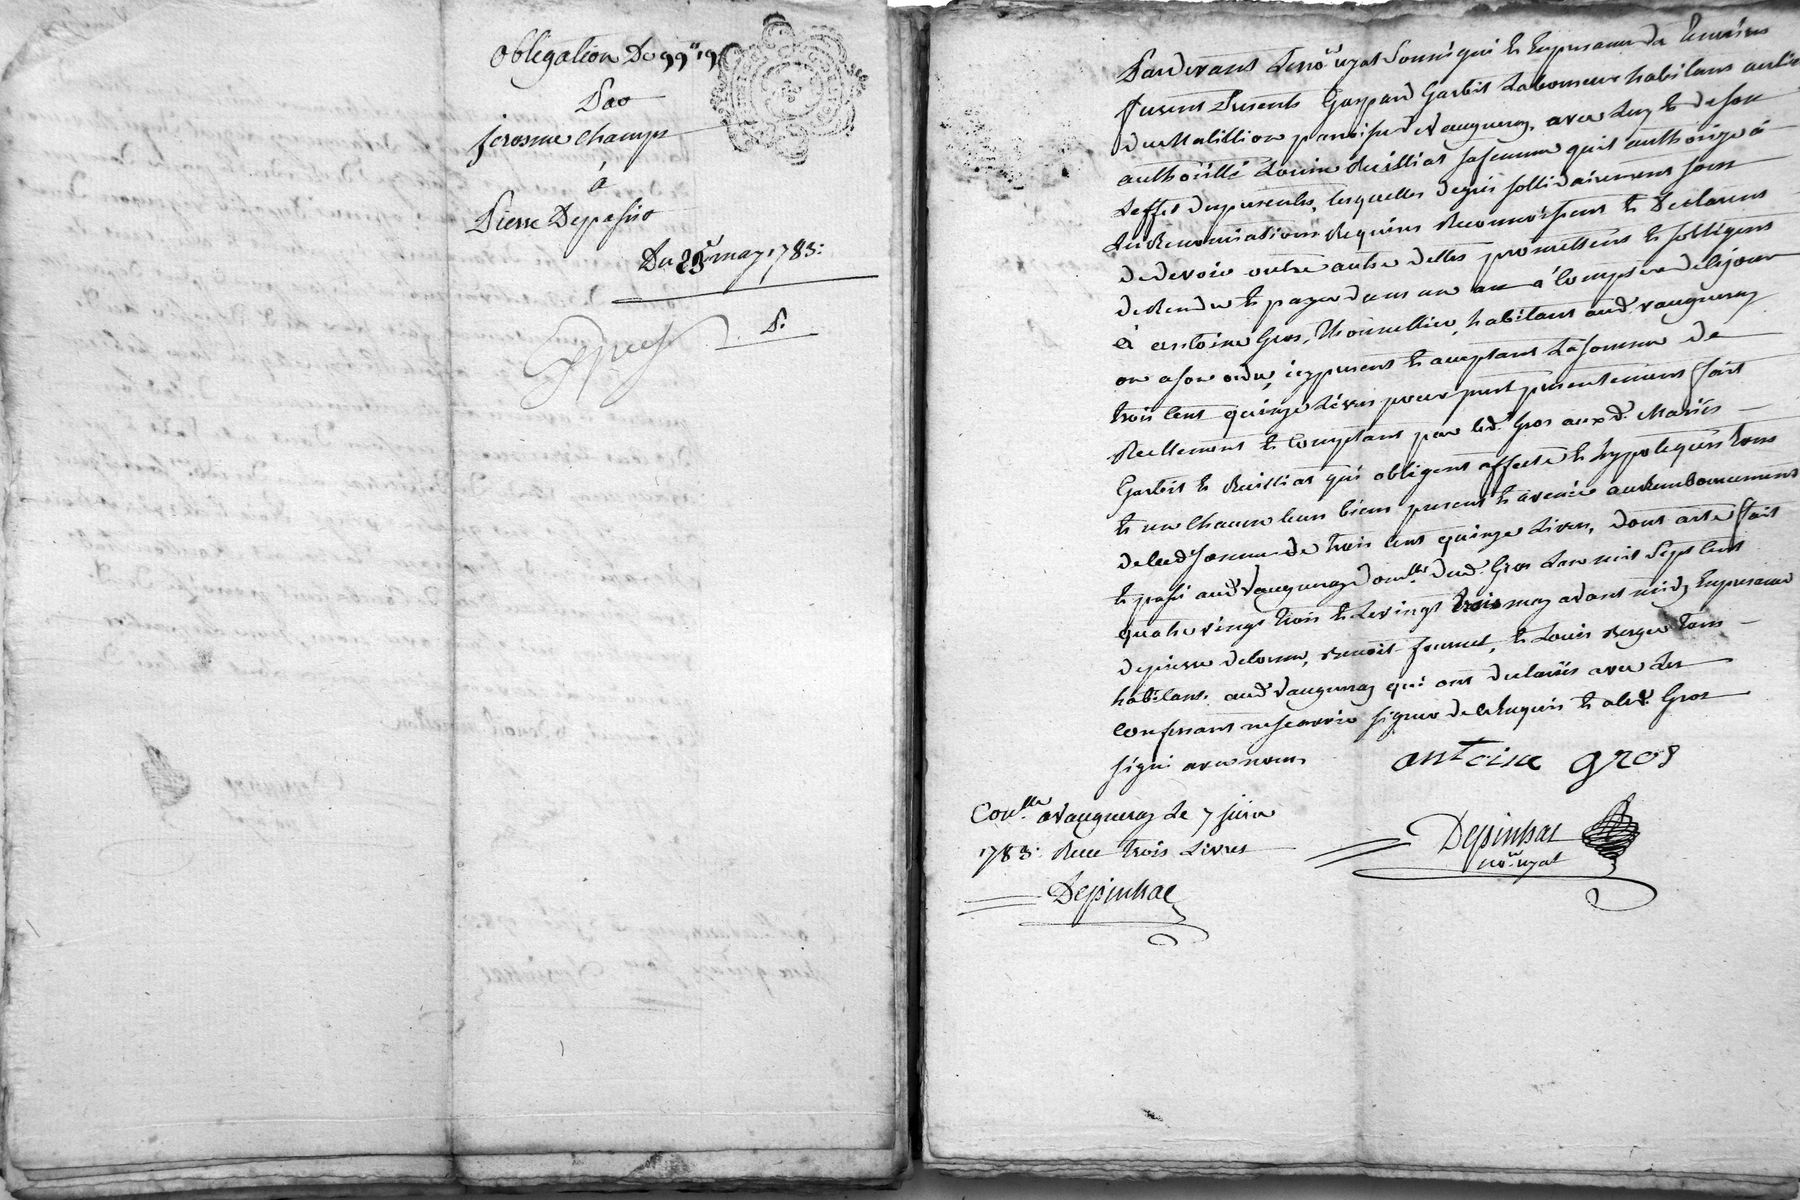 Obligation De 99 ll 19
Par
jerosme Champ
à
Pierre Depassio
Du 23 may 1783:
P.
Pardevant Le no.re royal soussigné et En presance des temoins
furent presents Gaspard Garbit Laboureur habitant au lieu
paroisse de Vaugneray, avec Luy et de son
authorité Louise Ruilliat sa femme qu'il authorize à
L'effet des presentes, lesquelles de gré sollidairement sous
Les Renonciations Requises Reconnoissent et Declarent
de devoir outre autre dettes promettent et sobligent
de Rendre et payer dans un an à Compter de ce jour
à antoine Gros, Thonnellier, habitant aud. vaugneray
ou a son ordre, icy present et acceptant La somme de
trois cent quinze Livres pour pret presentement fait
Reellement et Comptant par led. Gros auxd. Mariés
Garbit et Ruilliat qui obligent affecte et hypotequent tous
et un chacun leurs biens present et avenir au Remboursement
de lad. somme de trois cent quinze Livres, dont acte fait
et passé aud. Vaugneray dom.lle dud. Gros Lan mil sept cent
quatre vingt trois et Le vingt trois may avant midy En presance
de pierre delorme, Benoit fournel, et Louis Berger tous
habitants aud. Vaugneray qui ont declarés avec Les
Confessant ne scavoir signer de ce Enquis et a led. Gros
signé avec nous
antoine gros
Con.lle a Vaugneray Le 7 juin
1783: Reçu trois Livres
Depinhac
Depinhac
no.re royal